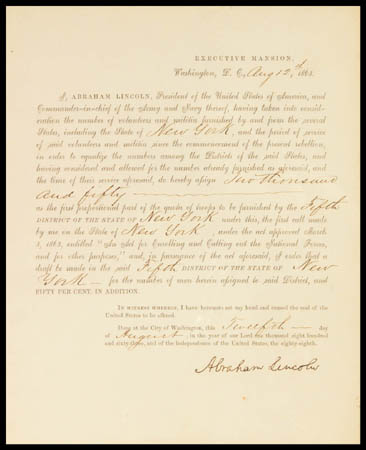 EXECUTIVE MANSION,
Washington, D. C, Aug 12,th 1863.
I, ABRAHAM LINCOLN, President of the United States of America, and
Commander-in-chief of the Army and Navy thereof, having taken into consid-
eration the number of volunteers and militia furnished by and from the several
States, including the State of New York, and the period of service
of said volunteers and militia since the commencement of the present rebellion,
in order to equalize the numbers among the Districts of the said States, and
having considered and allowed for the number already furnished as aforesaid, and
the time of their service aforesaid, do hereby assign Two thousand
and fifty
as the first proportional part of the quota of troops to be furnished by the Fifth
DISTRICT OF THE STATE OF New York under this, the first call made
by me on the State of New York, under the act approved March
3, 1863, entitled "An Act for Enrolling and Calling out the National Forces,
and for other purposes," and, in pursuance of the act aforesaid, I order that a
draft be made in the said Fifth DISTRICT OF THE STATE OF New
York — for the number of men herein assigned to said District, and
FIFTY PER CENT. IN ADDITION.
IN WITNESS WHEREOF, I have hereunto set my hand and caused the seal of the
United States to be affixed.
Done at the City of Washington, this Twelfth — day
of August, in the year of our Lord one thousand eight hundred
and sixty-three, and of the independence of the United States, the eighty-eighth.
Abraham Lincoln